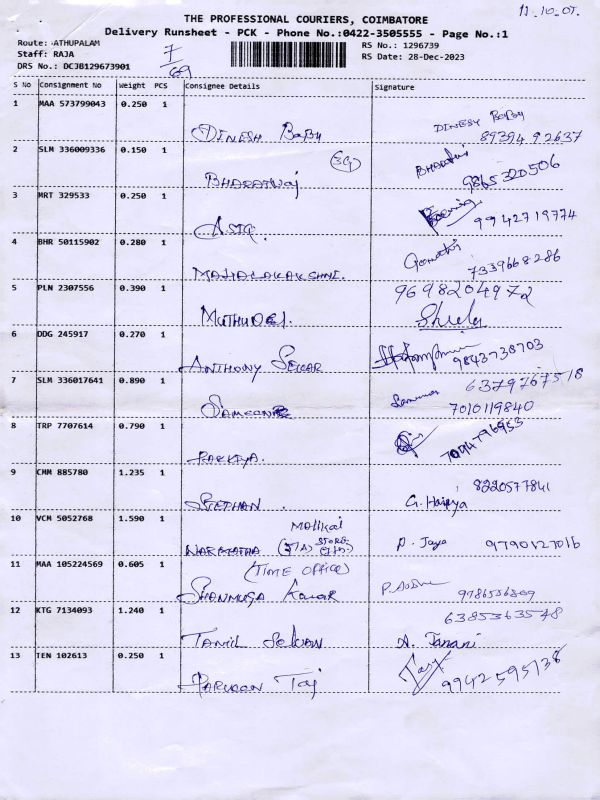 11.10.05.
THE PROFESSIONAL COURIERS, COIMBATORE
Delivery Runsheet - PCK - Phone No.:0422-3505555 - Page No.:1
Route: ATHUPALAM 7 RS No.: 1296739
Staff: RAJA 69 RS Date: 28-Dec-2023
DRS No.: DCJB129673901
S No Consignment No Weight PCS Consignee Details Signature
1 MAA 573799043 0.250 1
DINESH BABU DINESH BABU
89394 92637
2 SLM 336009336 0.150 1
BHARATWAJ BHARATHI
9865320506
3 MRT 329533 0.250 1
ASIQ. 9942719774
4 BHR 50115902 0.280 1
MAHALAKAKSHMI. Gomathi
7339668286
5 PLN 2307556 0.390 1 9698204972
MUTHU Shiela
6 DDG 245917 0.270 1
ANTHONY SEKAR 9843738703
7 SLM 336017641 0.890 1 6379767518
SAMEON 7010119840
8 TRP 7707614 0.790 1
PAKKIYA. 7094796953
9 CMM 885780 1.235 1 8220577841
JETHAN. G. Haripya
10 VCM 5052768 1.590 1
D. Jaya 9790127016
11 MAA 105224569 0.605 1 (TIME OFFICE)
SHANMUGA KUMAR 9786536809
12 KTG 7134093 1.240 1 6385363548
TAMIL SELVAN A. Janani
13 TEN 102613 0.250 1
PARVEEN TAJ Taj
9942595138